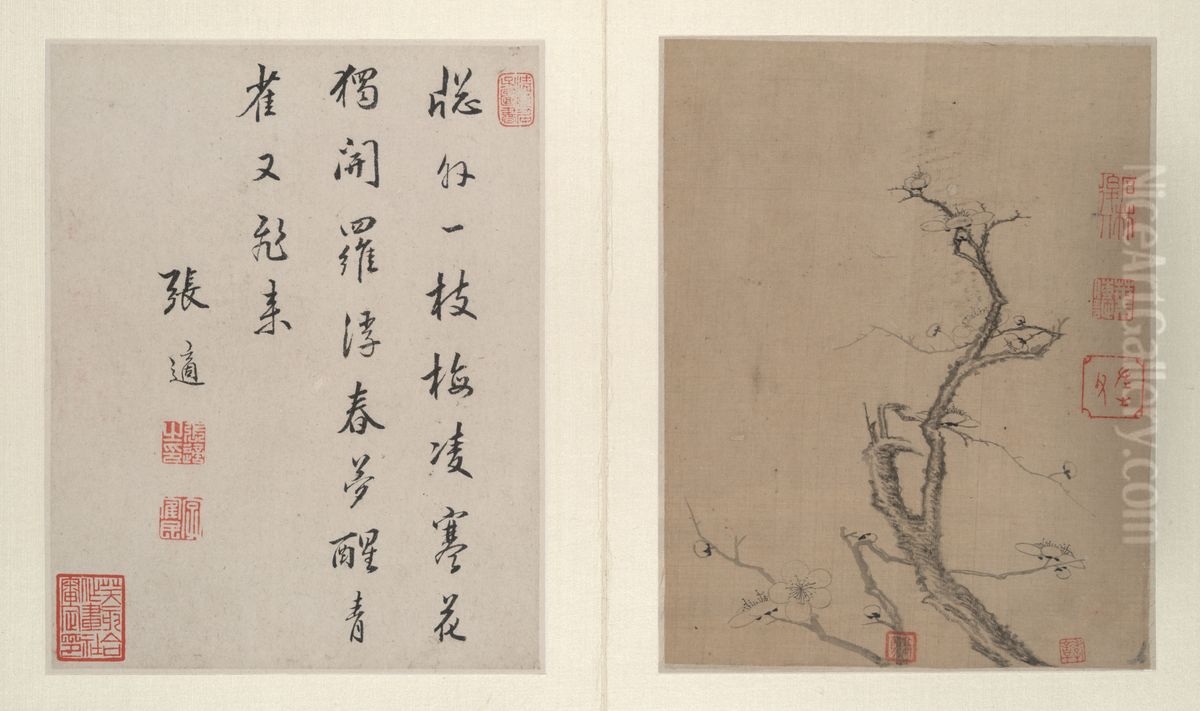 牎外一枝梅凌寒花
獨開羅浮春夢醒青
雀又飛來
張適
NiceArtGallery.com